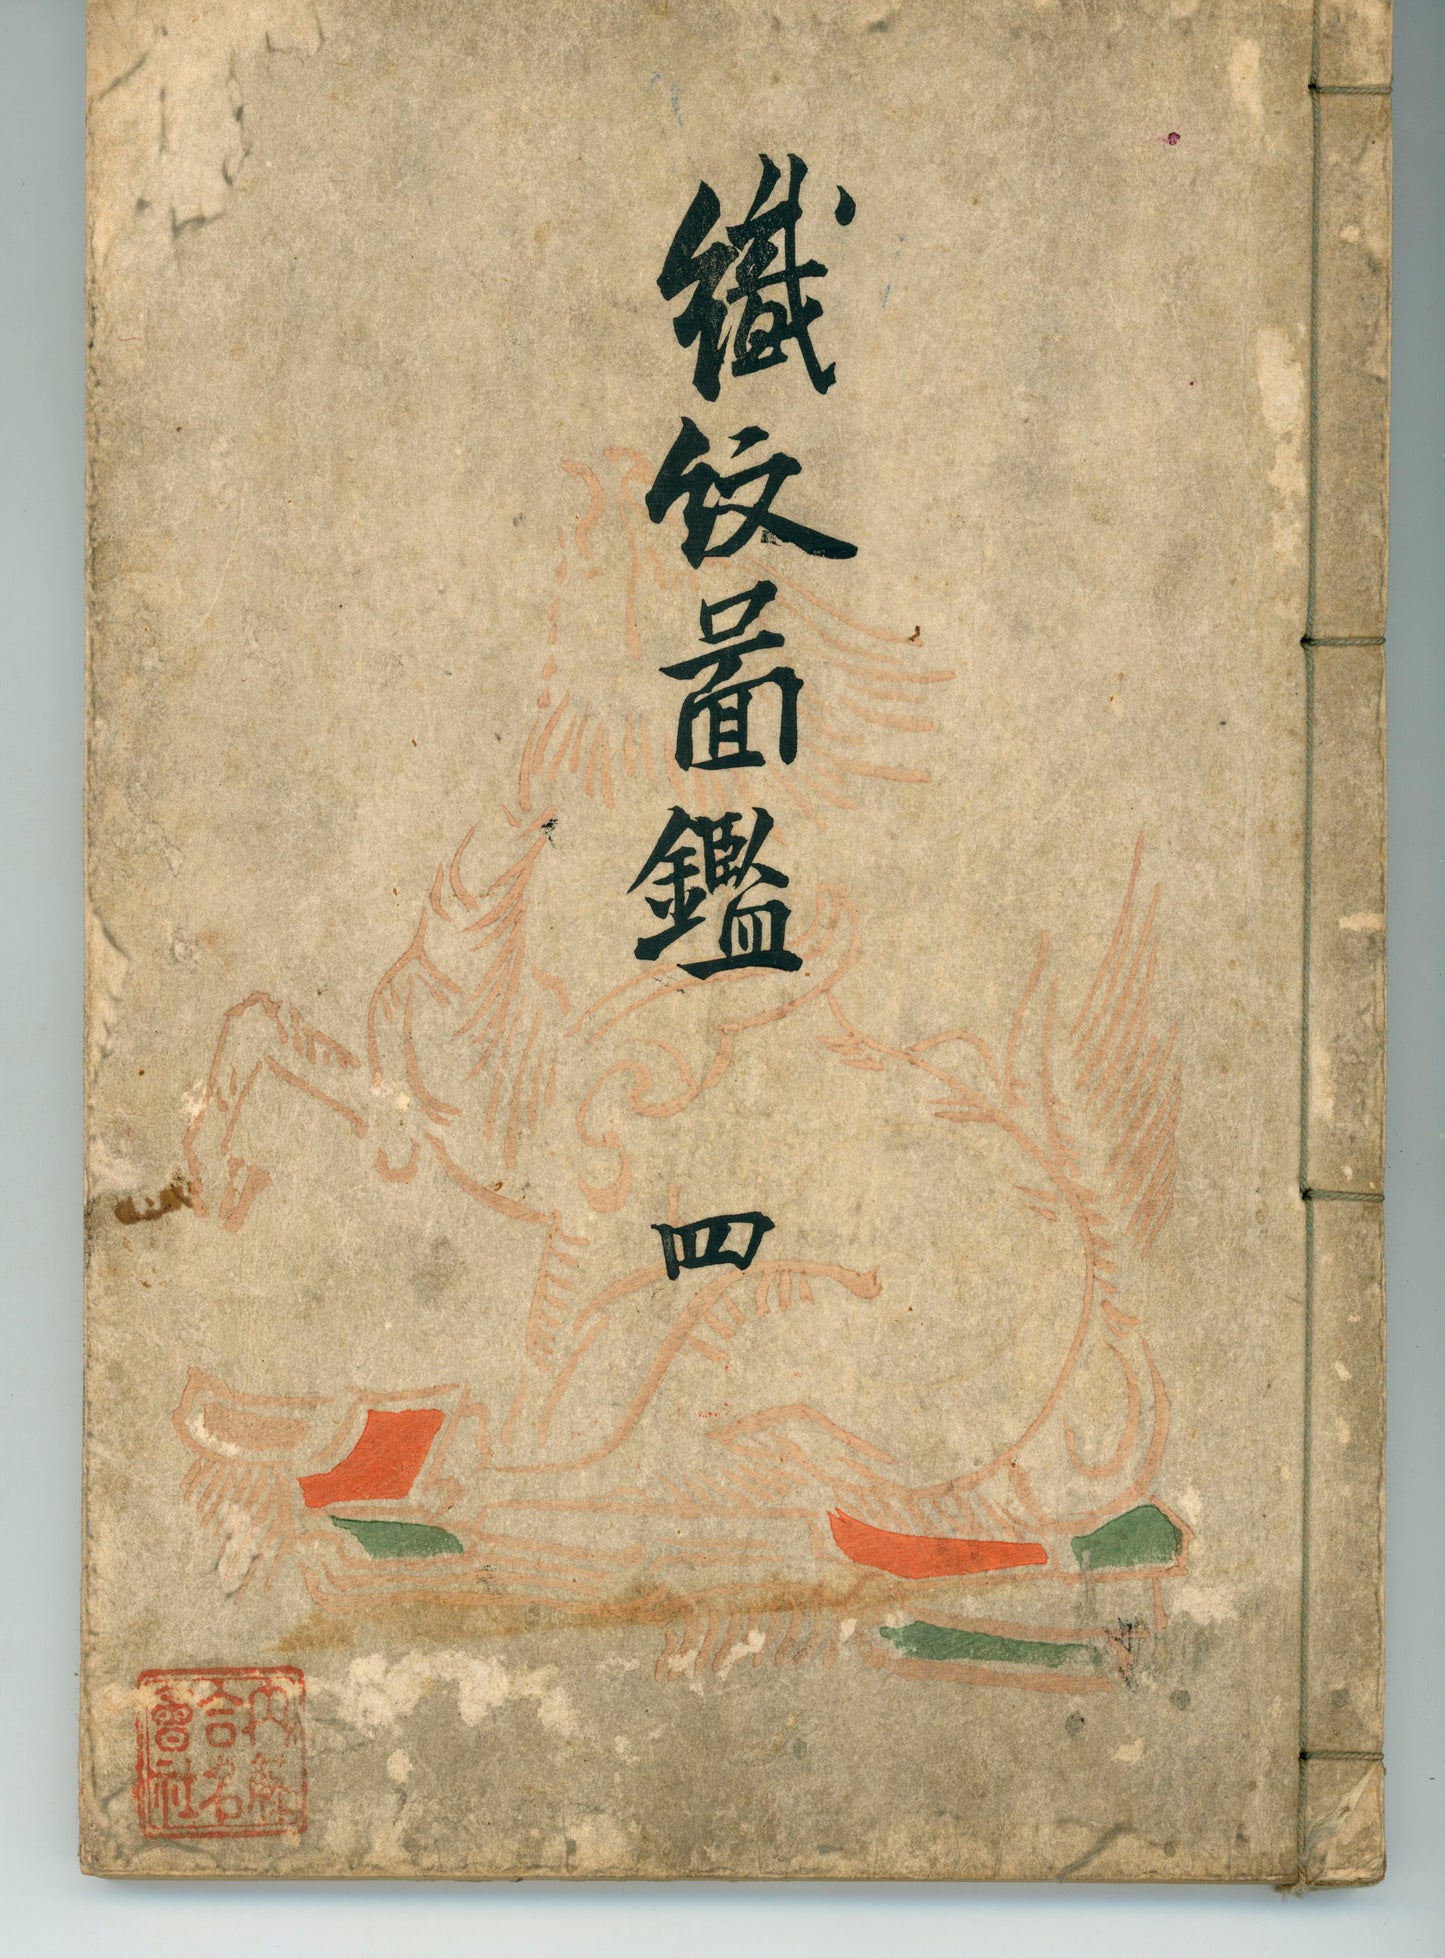 織紋圖鑑 四
合名
會社